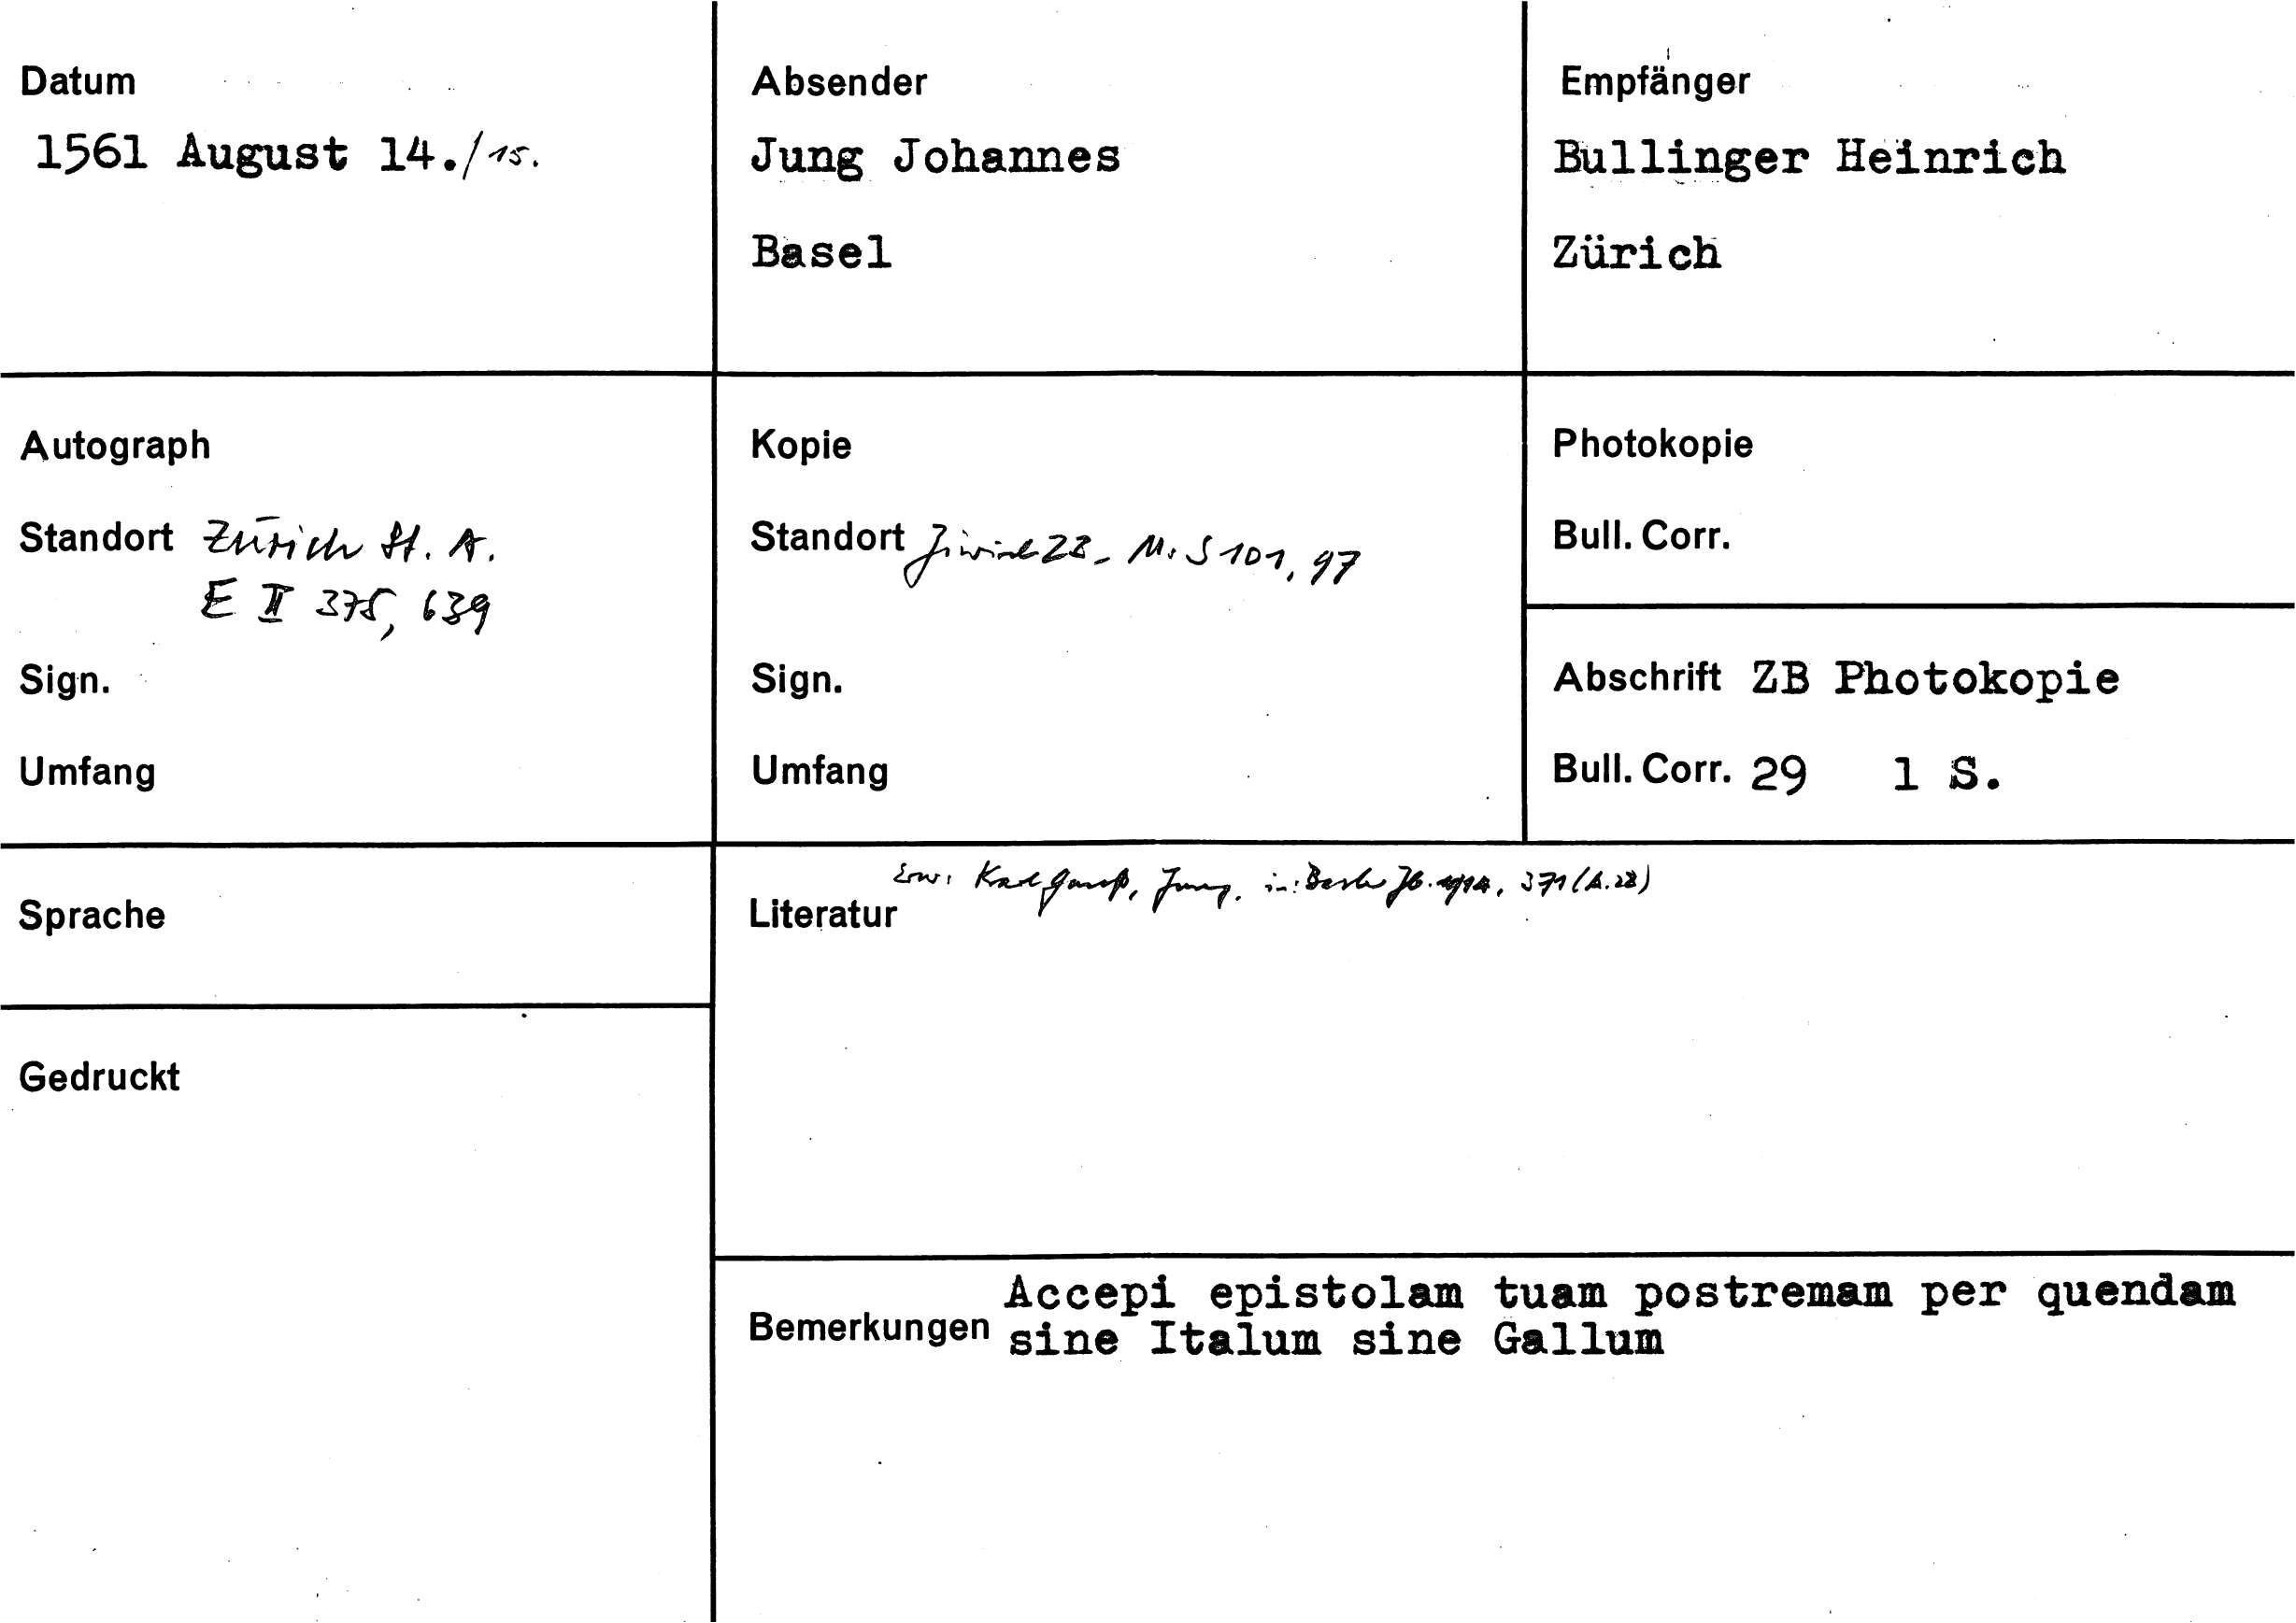 Datum
1561 August 14./15.
Absender
Jung Johannes
Basel
Empfänger
Bullinger Heinrich
Zürich
Autograph
Standort Zürich St. A.
E II 375, 639
Sign.
Umfang
Kopie
Standort Zürich ZB. Ms S 101, 97
Sign.
Umfang
Photokopie
Bull. Corr.
Abschrift ZB Photokopie
Bull. Corr. 29 1 S.
Sprache
Gedruckt
Erw. Karl Gauß, Jung, in: Basler Jb. 371 (A. 28)
Literatur
Bemerkungen Accepi epistolam tuam postremam per quendam
sine Italum sine Gallum